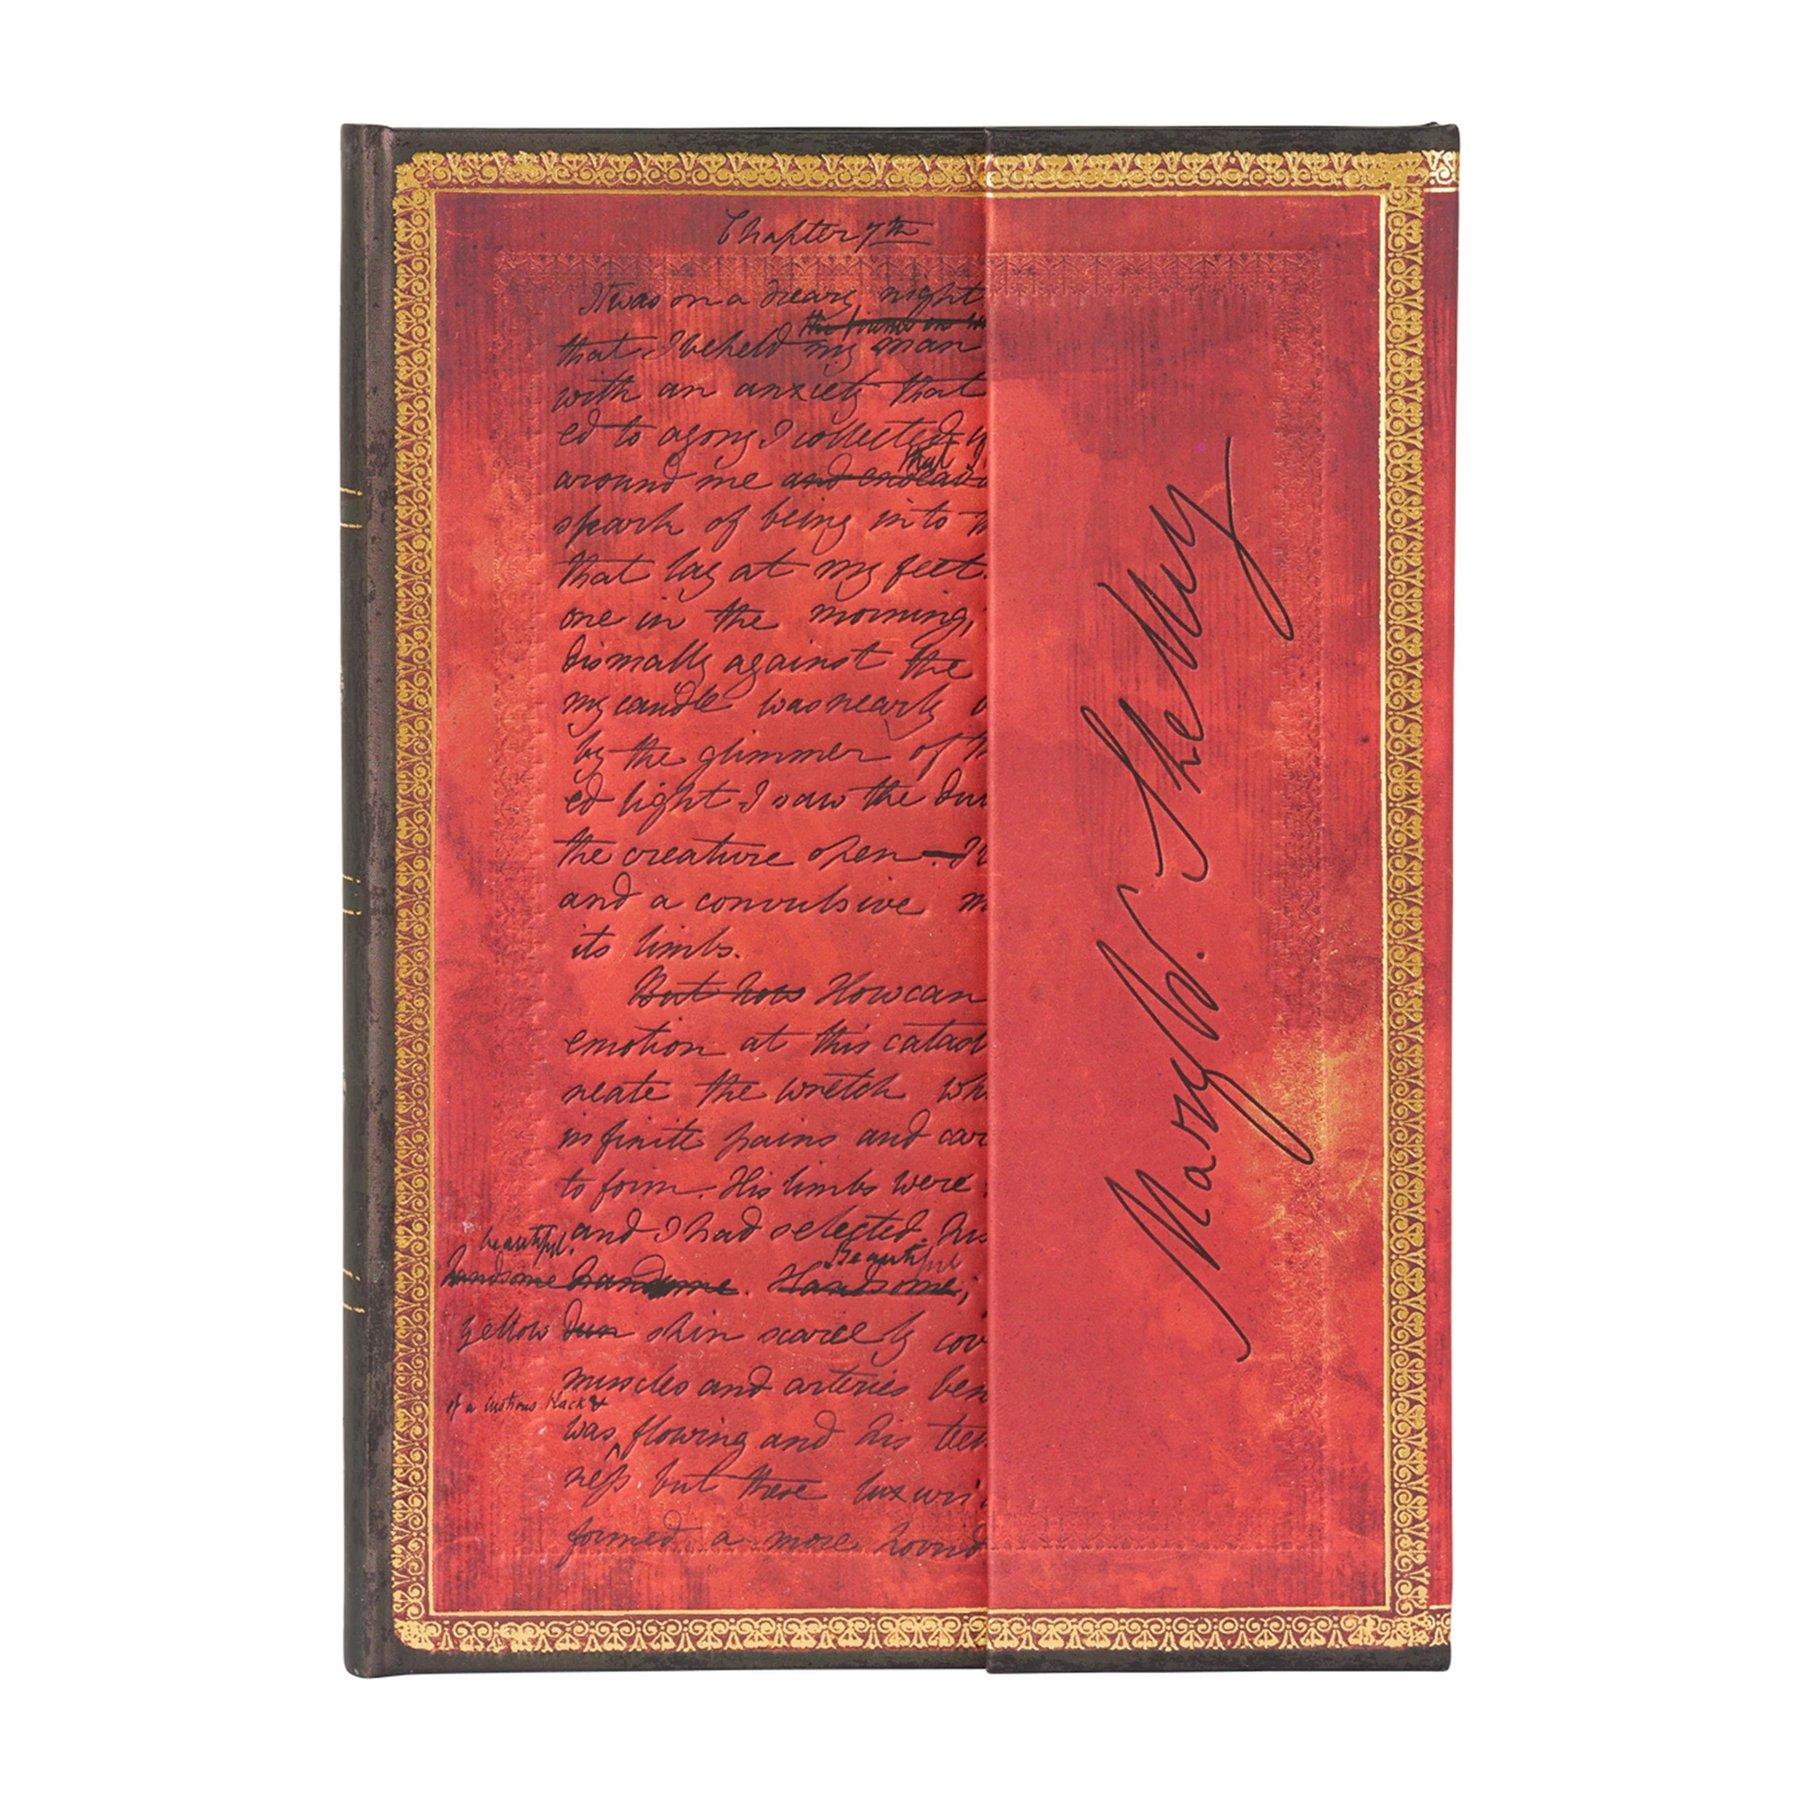 Chapter 7th
It was on a dreary night
that I beheld my man
with an anxiety that
ed to agony I collected
around me and endeav
that I
spark of being into th
that lay at my feet.
one in the morning,
dismally against the
my candle was nearly
by the glimmer of th
ed light I saw the dul
the creature open — It
and a convulsive m
its limbs.
But how How can
emotion at this catast
neate the wretch wh
infinite pains and car
to form. His limbs were
and I had selected his
beautiful. Beautiful
handsome handsome. Handsome;
yellow dun skin scarcely cov
muscles and arteries ben
of a lustrous black &
was flowing and his teet
ness but these luxuri
formed a more horrid
Mary W. Shelley